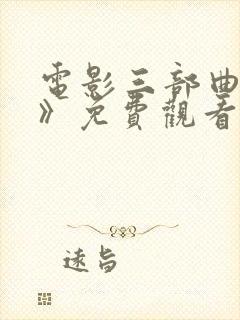 電影三部曲
》免費觀看
遠旨